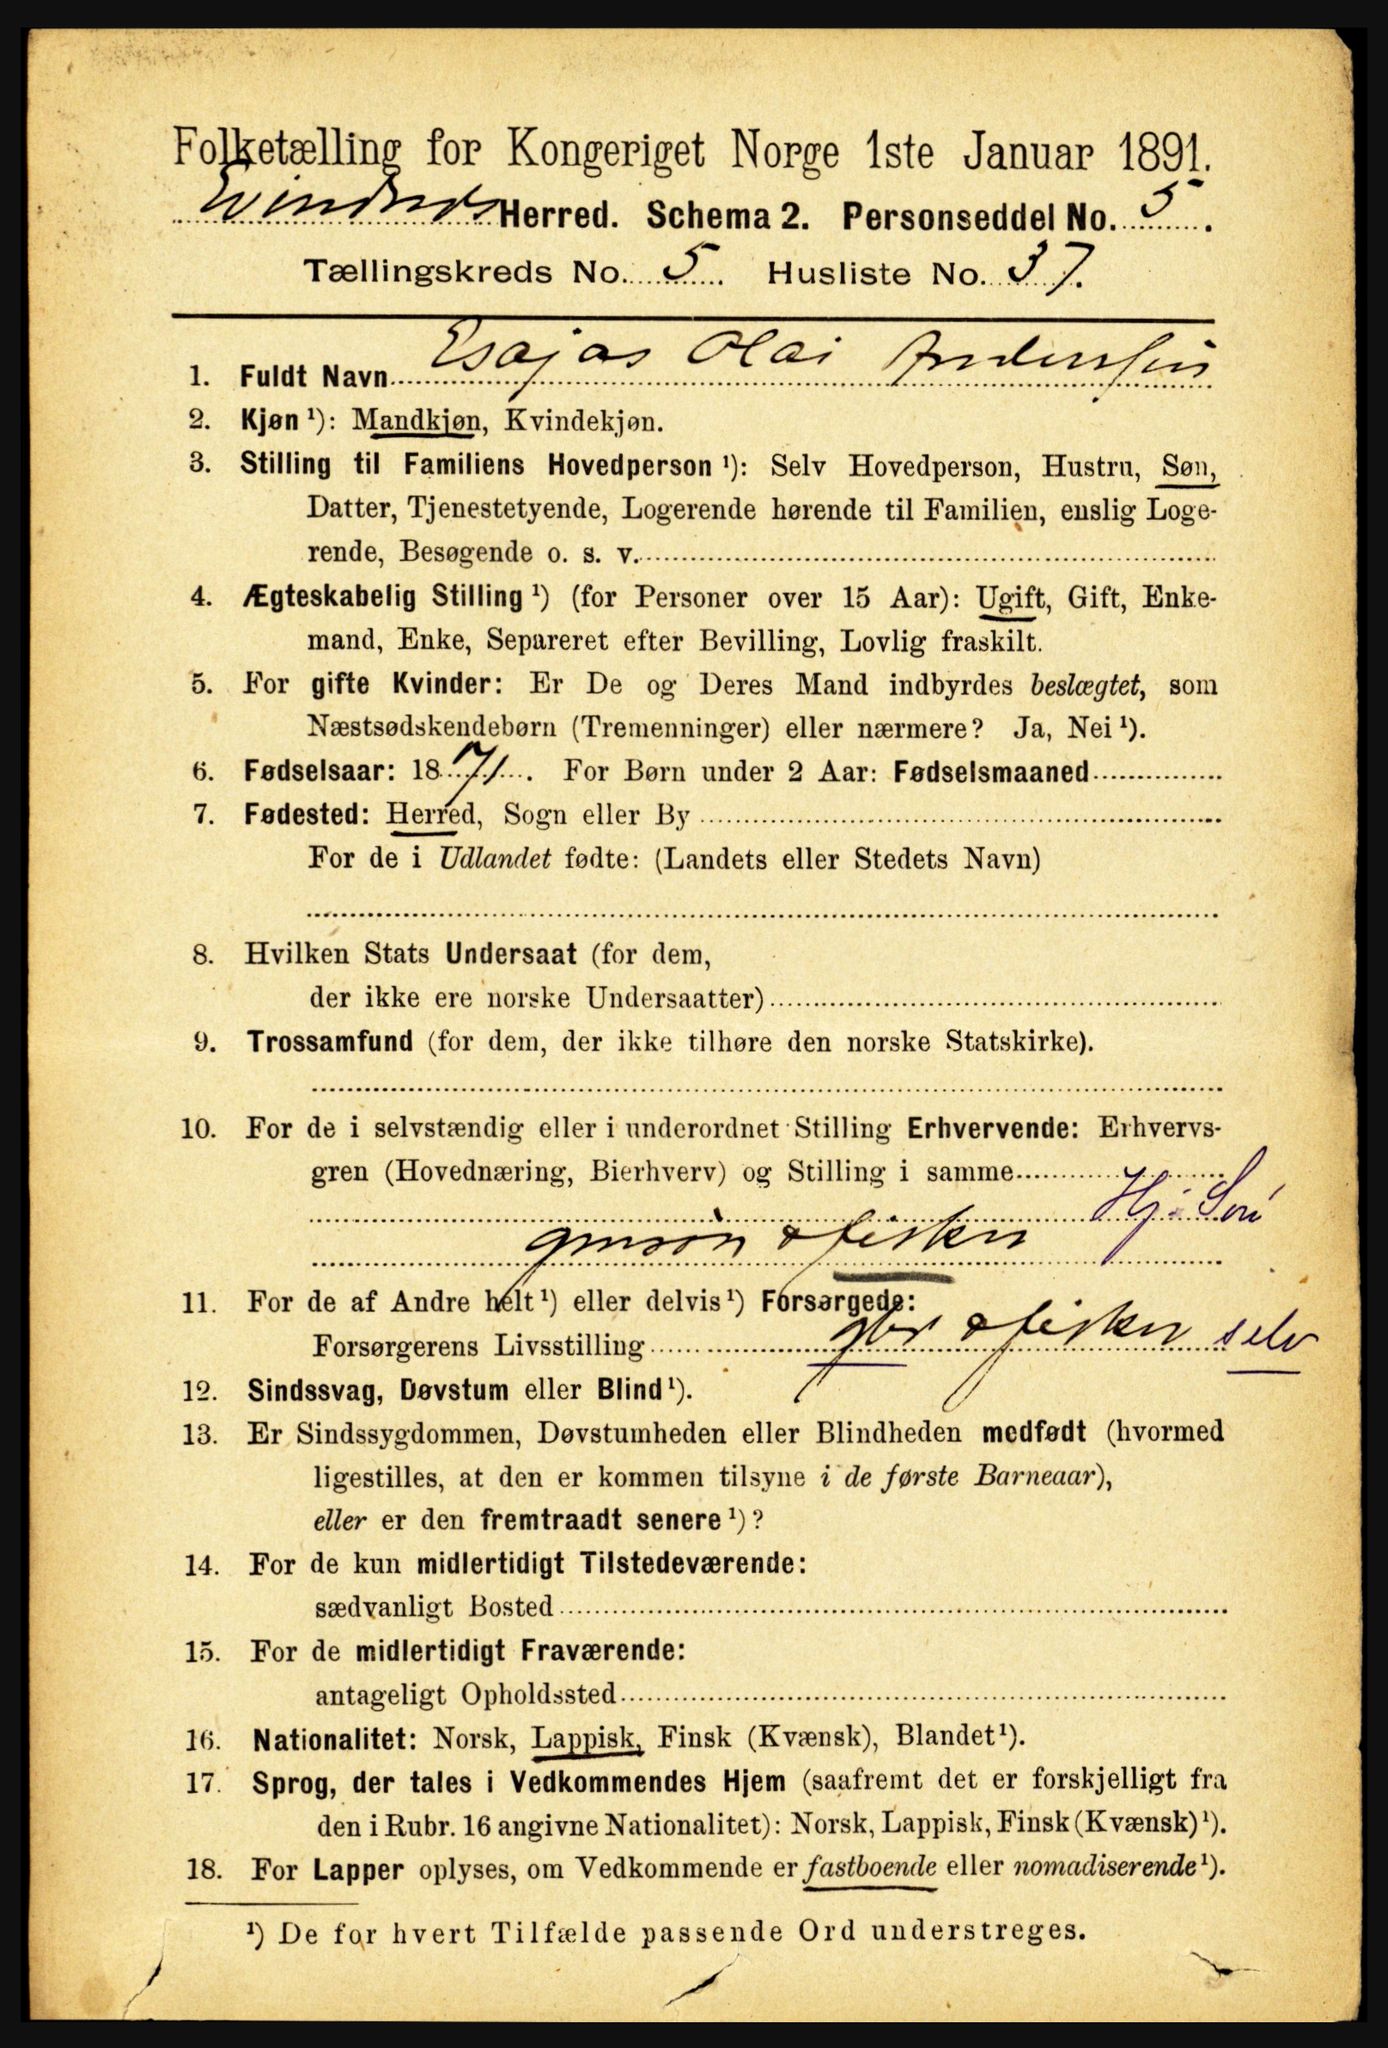 Folketælling for Kongeriget Norge 1ste Januar 1891.
Evindnes Herred. Schema 2. Personseddel No. 5.
Tællingskreds No. 5. Husliste No. 37.
1. Fuldt Navn Esajas Olai Anderssen
2. Kjøn ¹): Mandkjøn, Kvindekjøn.
3. Stilling til Familiens Hovedperson ¹): Selv Hovedperson, Hustru, Søn,
Datter, Tjenestetyende, Logerende hørende til Familien, enslig Loge-
rende, Besøgende o. s. v.
4. Ægteskabelig Stilling ¹) (for Personer over 15 Aar): Ugift, Gift, Enke-
mand, Enke, Separeret efter Bevilling, Lovlig fraskilt.
5. For gifte Kvinder: Er De og Deres Mand indbyrdes beslægtet, som
Næstsødskendebørn (Tremenninger) eller nærmere? Ja, Nei ¹).
6. Fødselsaar: 1871. For Børn under 2 Aar: Fødselsmaaned
7. Fødested: Herred, Sogn eller By
For de i Udlandet fødte: (Landets eller Stedets Navn)
8. Hvilken Stats Undersaat (for dem,
der ikke ere norske Undersaatter)
9. Trossamfund (for dem, der ikke tilhøre den norske Statskirke).
10. For de i selvstændig eller i underordnet Stilling Erhvervende: Erhvervs-
gren (Hovednæring, Bierhverv) og Stilling i samme
Hj. Søn
fisker
11. For de af Andre helt ¹) eller delvis ¹) Forsørgede:
Forsørgerens Livsstilling fisker selv
12. Sindssvag, Døvstum eller Blind ¹).
13. Er Sindssygdommen, Døvstumheden eller Blindheden medfødt (hvormed
ligestilles, at den er kommen tilsyne i de første Barneaar),
eller er den fremtraadt senere ¹)?
14. For de kun midlertidigt Tilstedeværende:
sædvanligt Bosted
15. For de midlertidigt Fraværende:
antageligt Opholdssted
16. Nationalitet: Norsk, Lappisk, Finsk (Kvænsk), Blandet ¹).
17. Sprog, der tales i Vedkommendes Hjem (saafremt det er forskjelligt fra
den i Rubr. 16 angivne Nationalitet): Norsk, Lappisk, Finsk (Kvænsk) ¹).
18. For Lapper oplyses, om Vedkommende er fastboende eller nomadiserende ¹).
¹) De for hvert Tilfælde passende Ord understreges.